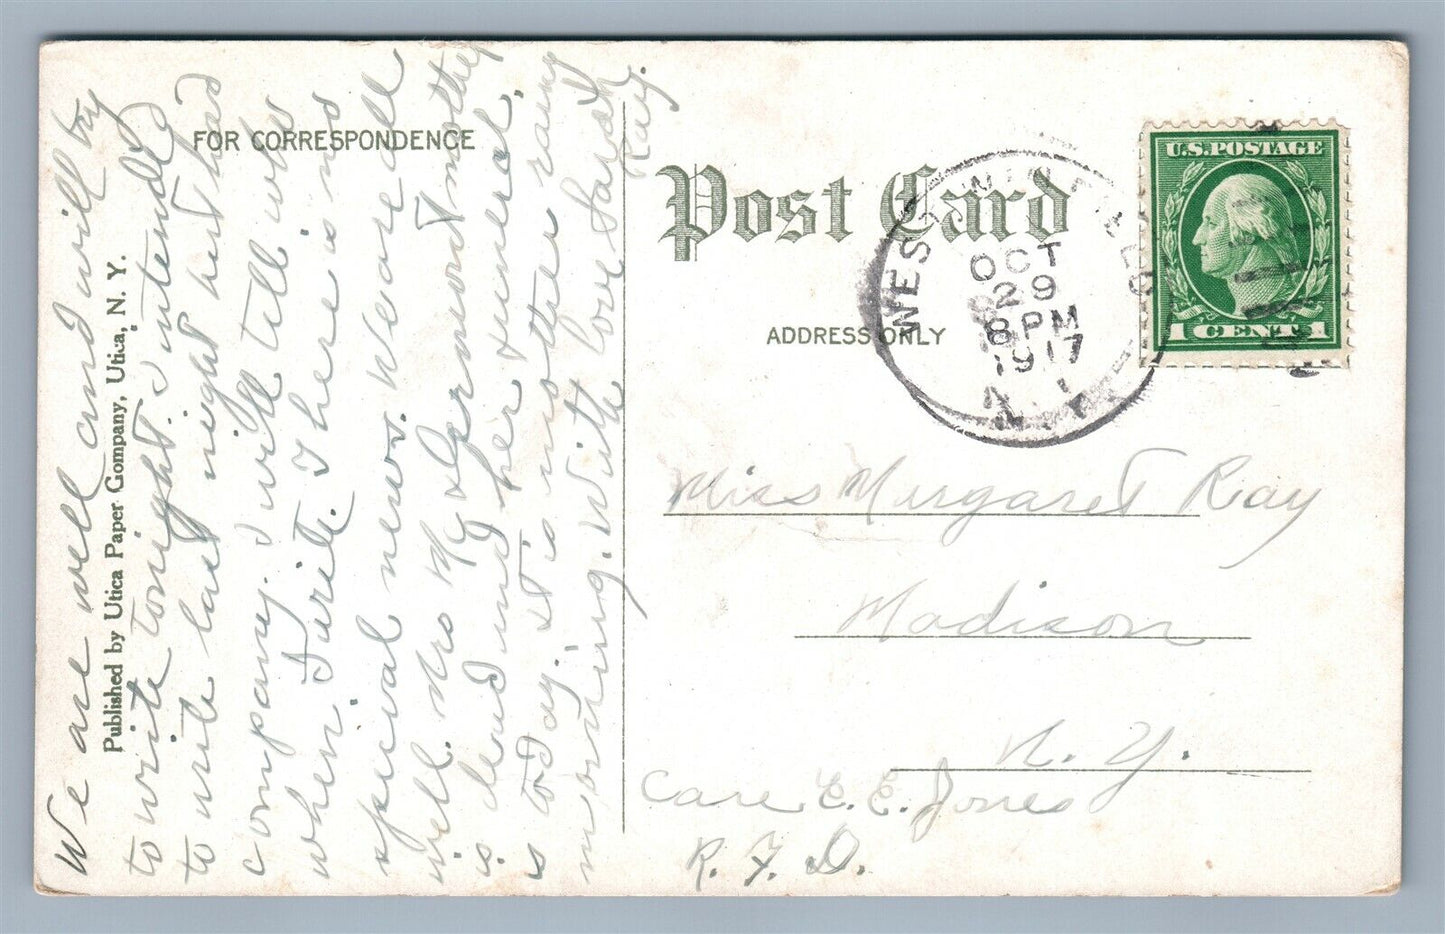 FOR CORRESPONDENCE
Post Card
ADDRESS ONLY
U.S. POSTAGE
1 CENT 1
WEST WINFIELD
OCT
29
8 PM
1917
N.Y.
Published by Utica Paper Company, Utica, N. Y.
We are well and will try
to write tonight. I intended
to write last night but had
company. I will tell who
when I write. There is no
special news. We are all
well. Mrs Mc Dermont mother
is dead and her funeral
is today. It is another rainy
morning. With love Sarah
Ray.
Miss Margaret Ray
Madison
N. Y.
Care E. E. Jones
R. F. D.